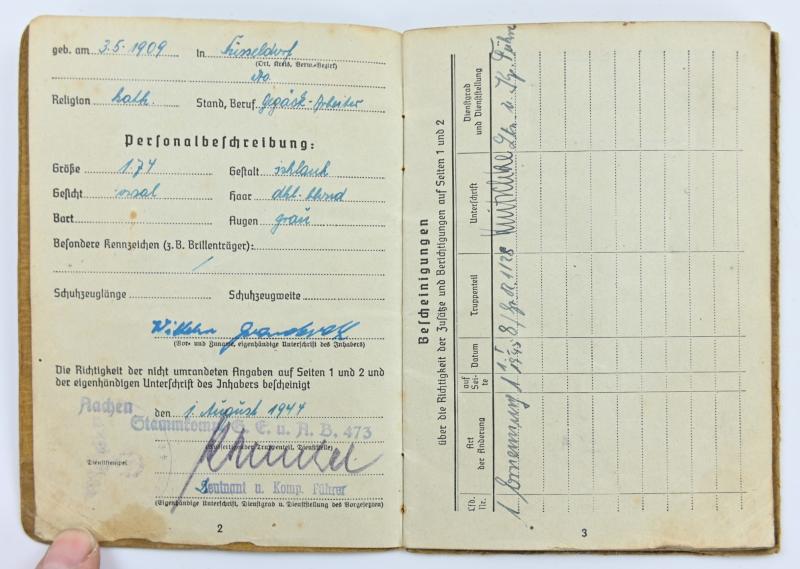 geb. am 3.5.1909 in Düsseldorf
(Ort, Kreis, Verw.-Bezirk)
Religion kath. Stand, Beruf Arbeiter
Personalbeschreibung:
Größe 1.74 Gestalt schlank
Gesicht oval Haar dkl. blond
Bart Augen grau
Besondere Kennzeichen (z. B. Brillenträger):
/
Schuhzeuglänge Schuhzeugweite
Wilhelm
(Vor- und Zuname, eigenhändige Unterschrift des Inhabers)
Die Richtigkeit der nicht umrandeten Angaben auf Seiten 1 und 2 und
der eigenhändigen Unterschrift des Inhabers bescheinigt
Aachen den 1. August 1944
Stammkomp. G. E. u. A. B. 473
Dienststempel
Leutnant u. Komp. Führer
(Eigenhändige Unterschrift, Dienstgrad u. Dienststellung des Vorgesetzten)
2
Bescheinigungen
über die Richtigkeit der Zusätze und Berichtigungen auf Seiten 1 und 2
Lfd. Nr.
Art der Änderung
auf Seite
Datum
Truppenteil
Unterschrift
Dienstgrad und Dienststellung
1. Ernennung 1 1.1. 1945 8./Gr.R. 1128 Ltn. u. Kp. Führer
3